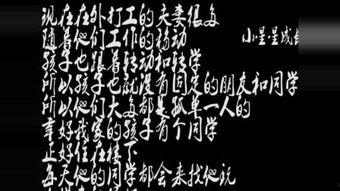 现在在外打工的夫妻很多
随着他们工作的移动
小星星成长
孩子也跟着转动和转学
所以孩子也就没有固定的朋友和同学
所以他们大多都是孤单一人的
幸好我家的孩子有个同学
正好住在楼下
每天他的同学都会来找他玩